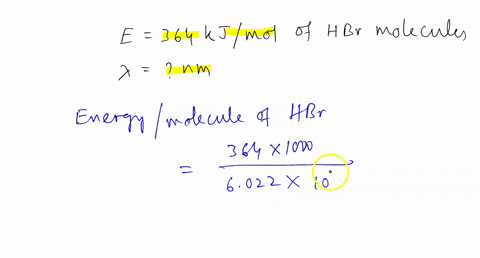 E = 364 kJ/mol of HBr molecules
λ = ? nm
Energy/molecule of HBr
= 364 × 1000
6.022 × 10